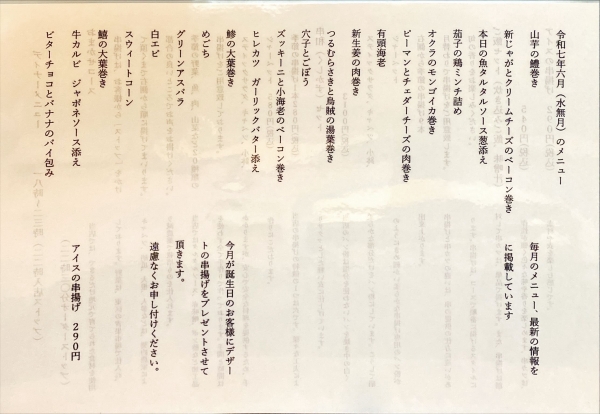 令和七年六月（水無月）のメニュー
山芋の鱧巻き
新じゃがとクリームチーズのベーコン巻き
本日の魚タルタルソース葱添え
茄子の鶏ミンチ詰め
オクラのモンゴイカ巻き
ピーマンとチェダーチーズの肉巻き
有頭海老
新生姜の肉巻き
つるむらさきと烏賊の湯葉巻き
穴子とごぼう
ズッキーニと小海老のベーコン巻き
ヒレカツ　ガーリックバター添え
鯵の大葉巻き
めごち
グリーンアスパラ
白エビ
スウィートコーン
鱚の大葉巻き
牛カルビ　ジャポネソース添え
ビターチョコとバナナのパイ包み
毎月のメニュー、最新の情報を
に掲載しています
今月が誕生日のお客様にデザー
トの串揚げをプレゼントさせて
頂きます。
遠慮なくお申し付けください。
アイスの串揚げ　290円